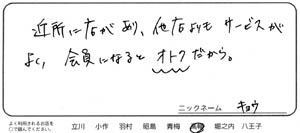 近所に店があり、他店よりも サービスが
よく、会員になると オトクだから。
ニックネーム キョウ
よく利用されるお店を
○で囲んでください。 立川 小作 羽村 昭島 青梅 高幡 堀之内 八王子